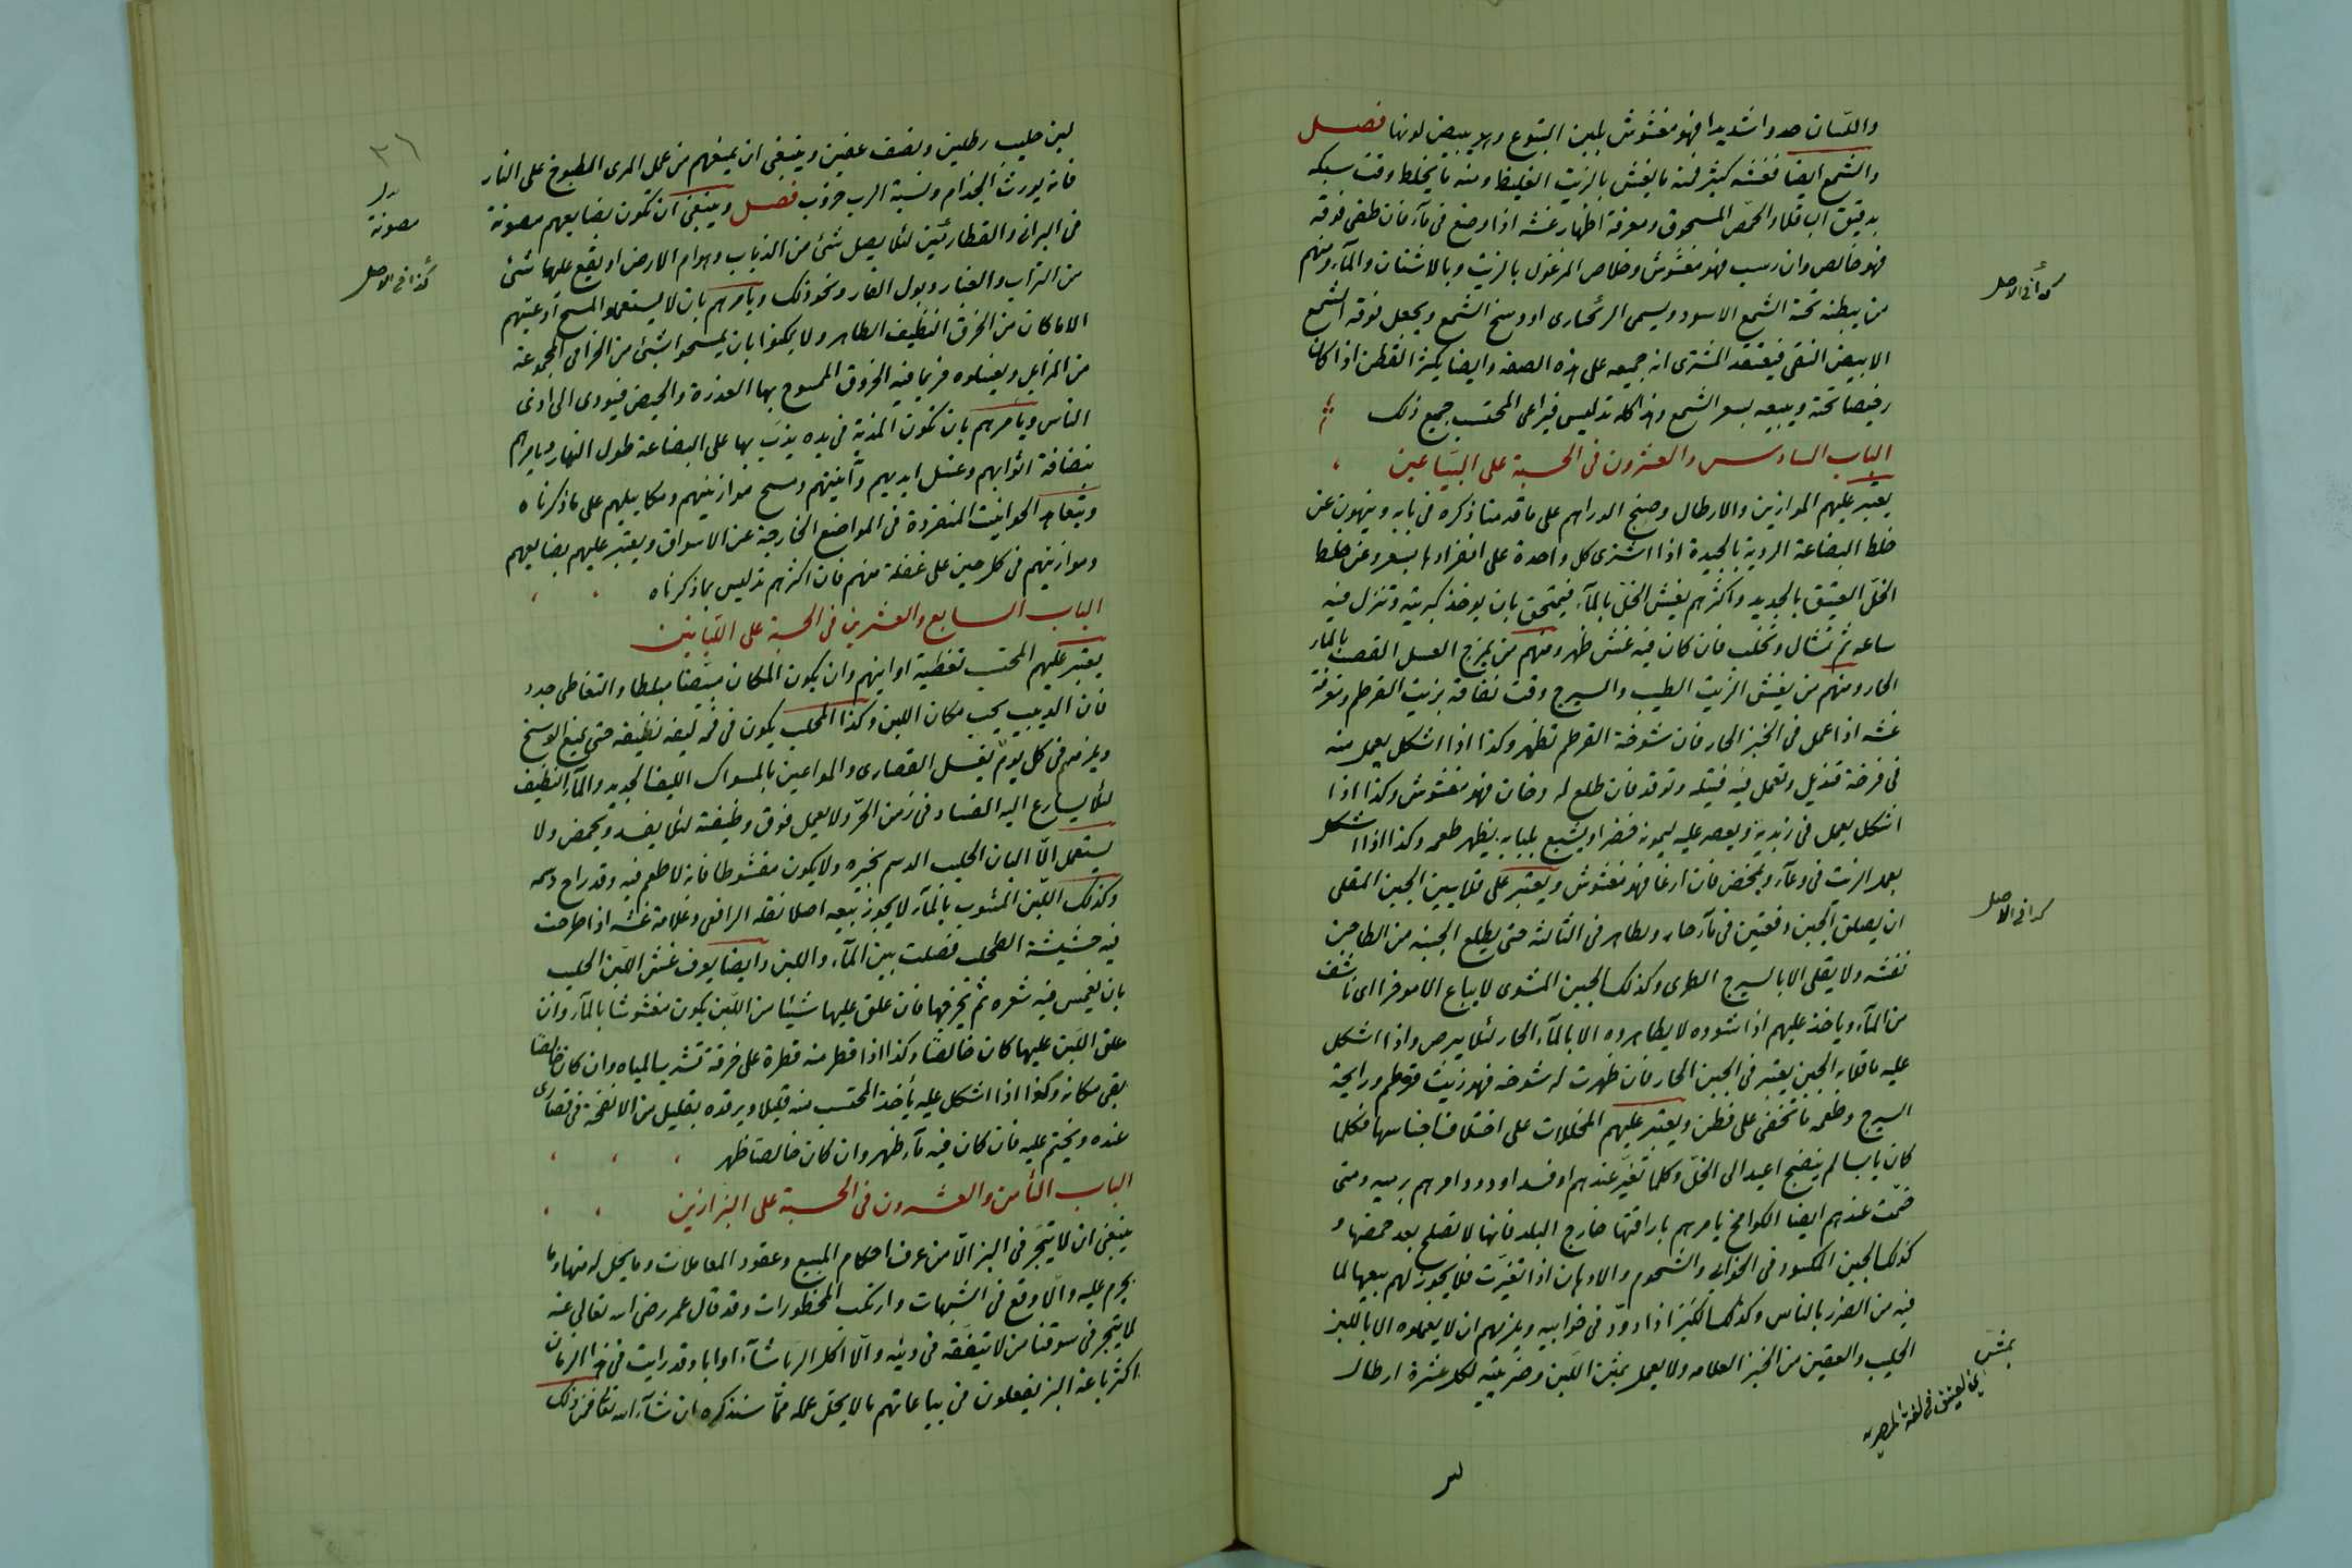 واللسان حدوا شديدا فهو مغشوش بلبن اليتوع ولا يبيض لونها فصل
والشمع ايضا نغشه كثير فمنه ما يغش بالزيت الغليظ ومنه ما يخلط وقت سبكه
بدقيق الباقلا والحمص المسحوق ومعرفة اظهار غشه اذا وضع فى مآء فان طفى فوقه
فهو خالص وان رسب فهو مغشوش وخلاص المرغول بالزيت وبالاشنان والمآء ومنهم
من يبطنه تحته الشمع الاسود ويسمى او وسخ الشمع ويجعل فوقه الشمع
الابيض النقى فيعتقد المشترى انه جميعه على هذه الصفة وايضا يكثر القطن اذا كان
رخيصا تحته ويبيعه بسعر الشمع وهذا كله تدليس فيراعى المحتسب جميع ذلك
الباب السادس والعشرون فى الحسبة على البيّاعين
يعتبر عليهم الموازين والارطال وصنج الدراهم على ما قدمنا ذكره فى بابه وينهون عن
خلط البضاعة الردية بالجيدة اذا اشترى كل واحدة على انفرادها بسعر وعن خلط
الخلّ العتيق بالجديد واكثرهم يغش الخل بالمآء فيمتحن بان يوخذ كبريتة وتنزل فيه
ساعه ثم تشال وتحلب فان كان فيه غش ظهر ومنهم من يمزج العسل القصب بالماء
الحار ومنهم من يغش الزيت الطيب والسيرج وقت نفاقه بزيت القرطم ومعرفة
غشه اذا عمل فى الخبز الحار فان شوخة القرطم تظهر وكذا اذا اشكل يعمل منه
فى فرخة قنديل وتعمل فيه فتيله وتوقد فان طلع له دخان فهو مغشوش وكذا اذا
اشكل يعمل فى زبدية ويعصر عليه ليمونه خضرا ويشبع بلبابه يظهر طعمه وكذا اذا اشكل
يعمل الزيت فى وعآء ويمخض فان ارغا فهو مغشوش ويعتبر على قلايين الجبن المقلى
ان يصلق الجبن دفعتين فى مآء حار وبطاهر فى الثالثة حتى يطلع الجبنه من الطاجن
نغشه ولا يقلى الا بالسيرج الطرى وكذلك الجبن المشوى لا يباع الا موخرا اى ناشف
من المآء وياخذ عليهم اذا شووه لا يطاهروه الا بالمآء الحار لئلا يبرص واذا اشكل
عليه ما قلا به الجبن يعتبر فى الجبن الحار فان ظهرت له شوخه فهو زيت قرطم ورايحة
السيرج وطعمه ما تخفى على فطن ويعتبر عليهم المخللات على اختلاف اجناسها فكلما
كان يابسا لم ينضج اعيد الى الخلّ وكلما تغيّر عندهم او فسد او دود امرهم برميه ومتى
خمّت عندهم ايضا الكوامخ يامرهم باراقتها خارج البلد فانها لا تصلح بعد حمضها و
كذلك الجبن المكسود فى الخوابى والشحوم والادهان اذا تغيّرت فلا يجوز لهم بيعها لما
فيه من الضرر بالناس وكذلك الكبر اذا دوّد فى خوابيه ويلزمهم ان لا يعملوه الا باللبن
الحليب والعقين من الخبز العلامه ولا يعمل بمش اللبن وضريبته لكل عشرة ارطال
كذا فى الاصل
كذا فى الاصل
بمش
٣١
مصونة
كذا فى الاصل
لبن حليب رطلين ونصف عقين وينبغى ان يمنعهم من عمل المرى المطبوخ على النار
فانه يورث الجذام ونسبة الرب خروب فصل وينبغى ان تكون بضايعهم مصونة
فى البرانى والقطارميز لئلا يصل شئ من الذباب وهوام الارض او يقع عليها شئ
من التراب والغبار وبول الفار ونحو ذلك ويامرهم بان لا يستعملوا لمسح اوعيتهم
الا ما كان من الخرق النظيف الطاهر ولا يمكنوا بان يمسحوا بشئ من الخرامى المجموعة
من المزابل ويغسلوه فربما فيه الخروق الممسوح بها العذرة والحيض فيودى الى اذى
الناس ويامرهم بان تكون المذبة فى يده يذبّ بها على البضاعة طول النهار ويامرهم
بنضافة اثوابهم وغسل ايديهم وآنيتهم ومسح موازينهم ومكاييلهم على ما ذكرناه
ويتعاهد الحوانيت المنفردة فى المواضع الخارجة عن الاسواق ويعتبر عليهم بضايعهم
وموازينهم فى كل حين على غفلة منهم فان اكثرهم تدليس بما ذكرناه
الباب السابع والعشرين فى الحسبة على اللبّانين
يعتبر عليهم المحتسب تغطية اوانيهم وان يكون المكان مبيّضا مبلطا والتغاطى جدد
فان الدبيب يحب مكان اللبن وكذا المحلب يكون فى فمه ليفه نظيفه حتى يمنع الوسخ
ويلزمهم فى كل يوم بغسل القصارى والمواعين بالمسواك الليف الجديد والمآء النظيف
لئلا يسارع اليه الفساد فى زمن الحرّ ولا يعمل فوق وظيفته لئلا يفسد ويحمض ولا
يستعمل الّا البان الحليب الدسم بخيره ولا يكون مقشوطا فانه لا طعم فيه وقد راح دسمه
وكذلك اللبن المشوب بالمآء لا يجوز بيعه اصلا نقله الرافعى وعلامة غشه اذا طرحت
فيه حشيشة الطحلب فصلت بين المآء واللبن وايضا يعرف غش اللبن الحليب
بان يغمس فيه شعره ثم تخرجها فان علق عليها شيئا من اللبن يكون مغشوشا بالمآء وان
علق اللبن عليها كان خالصا وكذا اذا قطر منه قطرة على خرقة تشرب المياه وان كان خالصا
بقى مكانه وكذا اذا اشكل عليه يأخذ المحتسب منه قليلا ويرقده بقليل من الانفحة فى قصارى
عنده ويختم عليه فان كان فيه مآء ظهر وان كان خالصا ظهر
الباب الثامن والعشرون فى الحسبة على البزازين
ينبغى ان لا يتجر فى البز الّا من عرف احكام البيع وعقود المعاملات وما يحل له منها وما
يحرم عليه والّا وقع فى الشبهات وارتكب المحظورات وقد قال عمر رضى الله تعالى عنه
لا يتجر فى سوقنا من لا يتفقه فى دينه والّا اكل الربا شآء او ابا وقد رايت فى هذا الزمان
اكثر باعة البز يفعلون فى بياعاتهم ما لا يحل عمله ممّا سنذكره ان شآء الله تعالى فمن ذلك